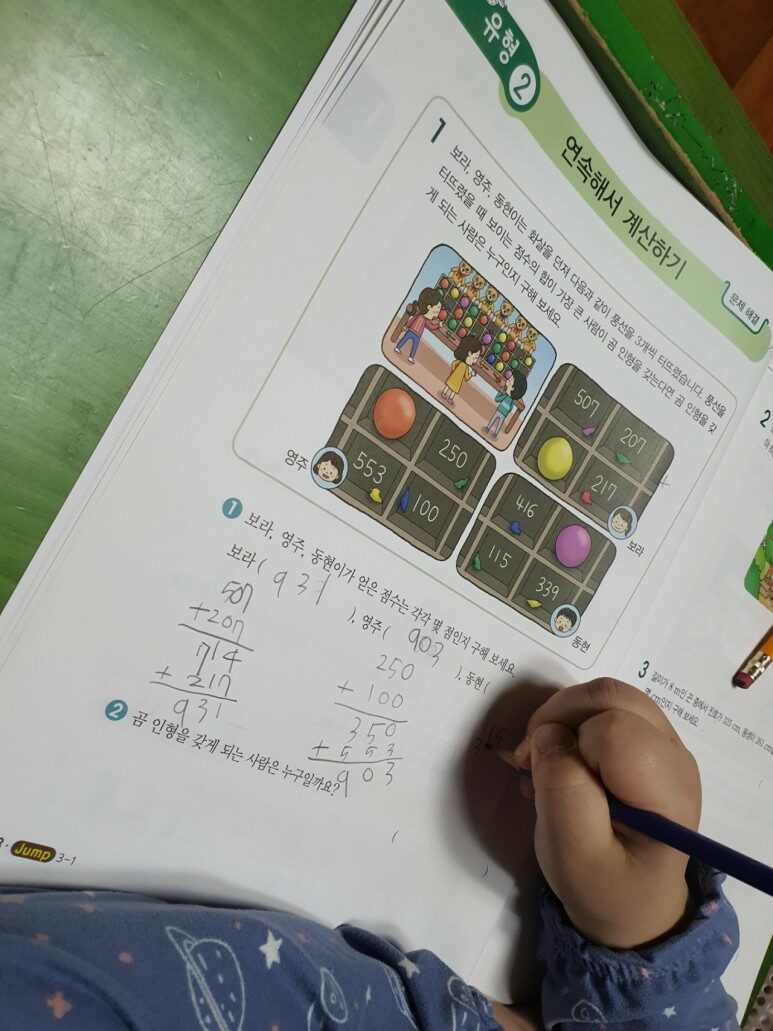 유형 2
연속해서 계산하기
문제 해결
1 보라, 영주, 동현이는 화살을 던져 다음과 같이 풍선을 3개씩 터뜨렸습니다. 풍선을
터뜨렸을 때 보이는 점수의 합이 가장 큰 사람이 곰 인형을 갖는다면 곰 인형을 갖
게 되는 사람은 누구인지 구해 보세요.
507
207
217
보라
250
553
100
영주
416
115
339
동현
1 보라, 영주, 동현이가 얻은 점수는 각각 몇 점인지 구해 보세요.
보라 ( 931 ), 영주 ( 903 ), 동현 (
507
+207
714
+ 217
931
250
+ 100
350
+ 553
903
115
3
2 곰 인형을 갖게 되는 사람은 누구일까요?
( )
Jump 3-1
2
3 길이가 8 m인 끈 중에서 진호가 325 cm, 동생이 261 cm
몇 cm인지 구해 보세요.